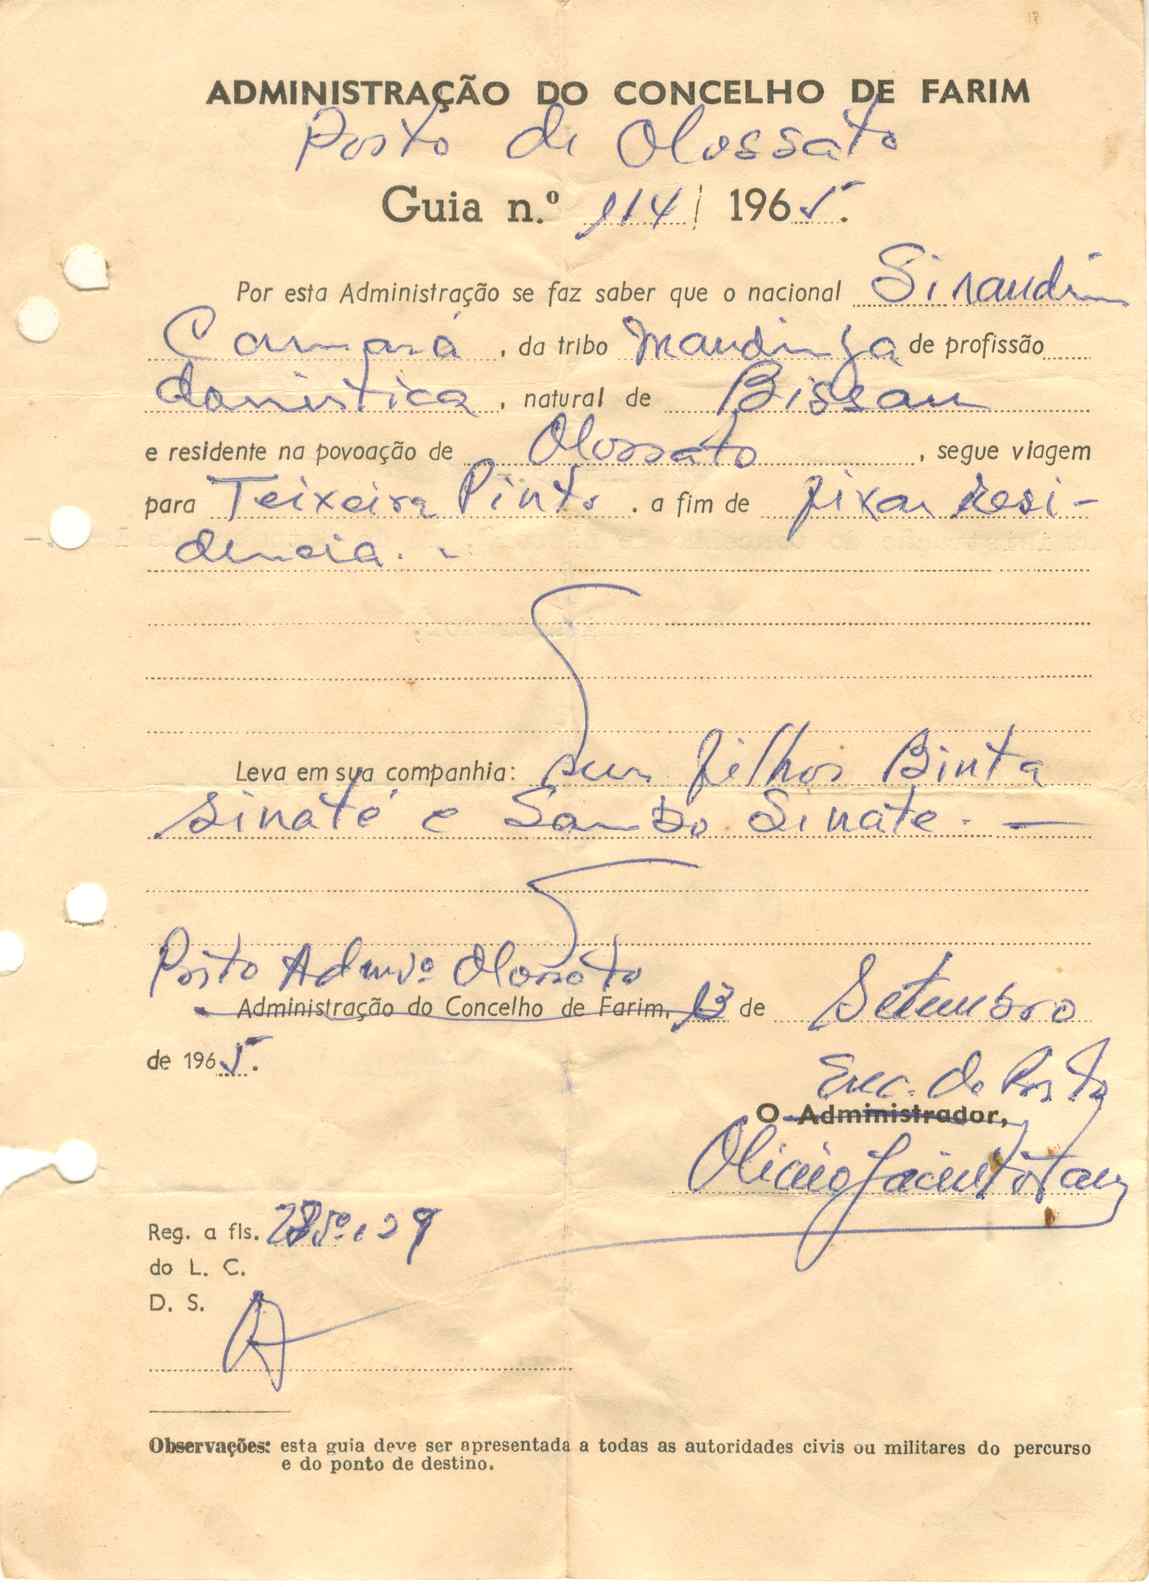 ADMINISTRAÇÃO DO CONCELHO DE FARIM
Posto de Olossato
Guia n.º 114 / 1965.
Por esta Administração se faz saber que o nacional
Camará, da tribo Mandinga de profissão
doméstica, natural de Bissau
e residente na povoação de Olossato, segue viagem
para Teixeira Pinto. a fim de fixar resi-
dencia. -
Leva em sua companhia: seus filhos Binta
Sinaté e Sambo Sinate. —
Posto Admvº Olossato
Administração do Concelho de Farim, 13 de Setembro
de 1965.
Enc. do Posto
O Administrador,
Reg. a fls.
do L. C.
D. S.
Observações: esta guia deve ser apresentada a todas as autoridades civis ou militares do percurso
e do ponto de destino.